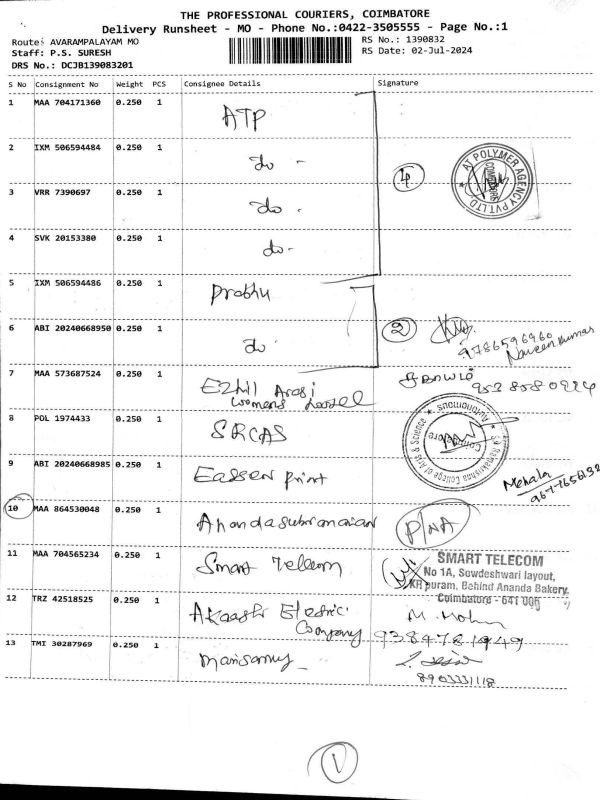 THE PROFESSIONAL COURIERS, COIMBATORE
Delivery Runsheet - MO - Phone No.:0422-3505555 - Page No.:1
Route: AVARAMPALAYAM MO
Staff: P.S. SURESH
DRS No.: DCJB139083201
RS No.: 1390832
RS Date: 02-Jul-2024
S No Consignment No Weight PCS Consignee Details Signature
1 MAA 704171360 0.250 1 ATP
2 IXM 506594484 0.250 1 do -
4
AT POLYMER AGENCY PVT LTD
COIMBATORE
3 VRR 7390697 0.250 1 do -
4 SVK 20153380 0.250 1 do -
5 IXM 506594486 0.250 1 Prabhu
6 ABI 20240668950 0.250 1 do
2
9786596960
Naveen Kumar
7 MAA 573687524 0.250 1 Ezhil Arasi
womens hostel
8 POL 1974433 0.250 1 SRCAS
Sri Ramakrishna College of Arts & Science
Autonomous
Coimbatore
9 ABI 20240668985 0.250 1 Easseer print
Mehala
10 MAA 864530048 0.250 1 Anandasubramanian P/NA
11 MAA 704565234 0.250 1 Smart Telecom
SMART TELECOM
No 1A, Sowdeshwari layout,
KR puram, Behind Ananda Bakery,
Coimbatore - 641 006
12 TRZ 42518525 0.250 1 Akaash Electric
Company
M. Mohan
9384781949
13 TMI 30287969 0.250 1 Marisamy
8903331118
1